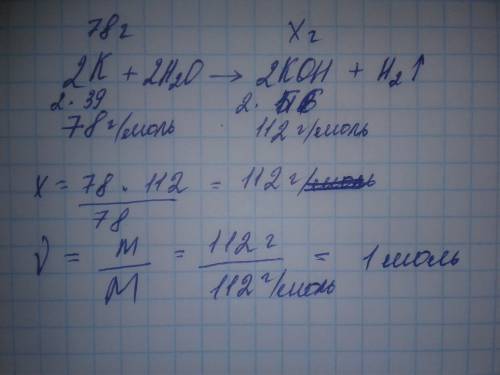 78г Xг
2K + 2H₂O → 2KOH + H₂↑
2·39 2·56
78г/моль 112г/моль
x = 78 · 112 / 78 = 112г/
ν = m / M = 112г / 112г/моль = 1моль